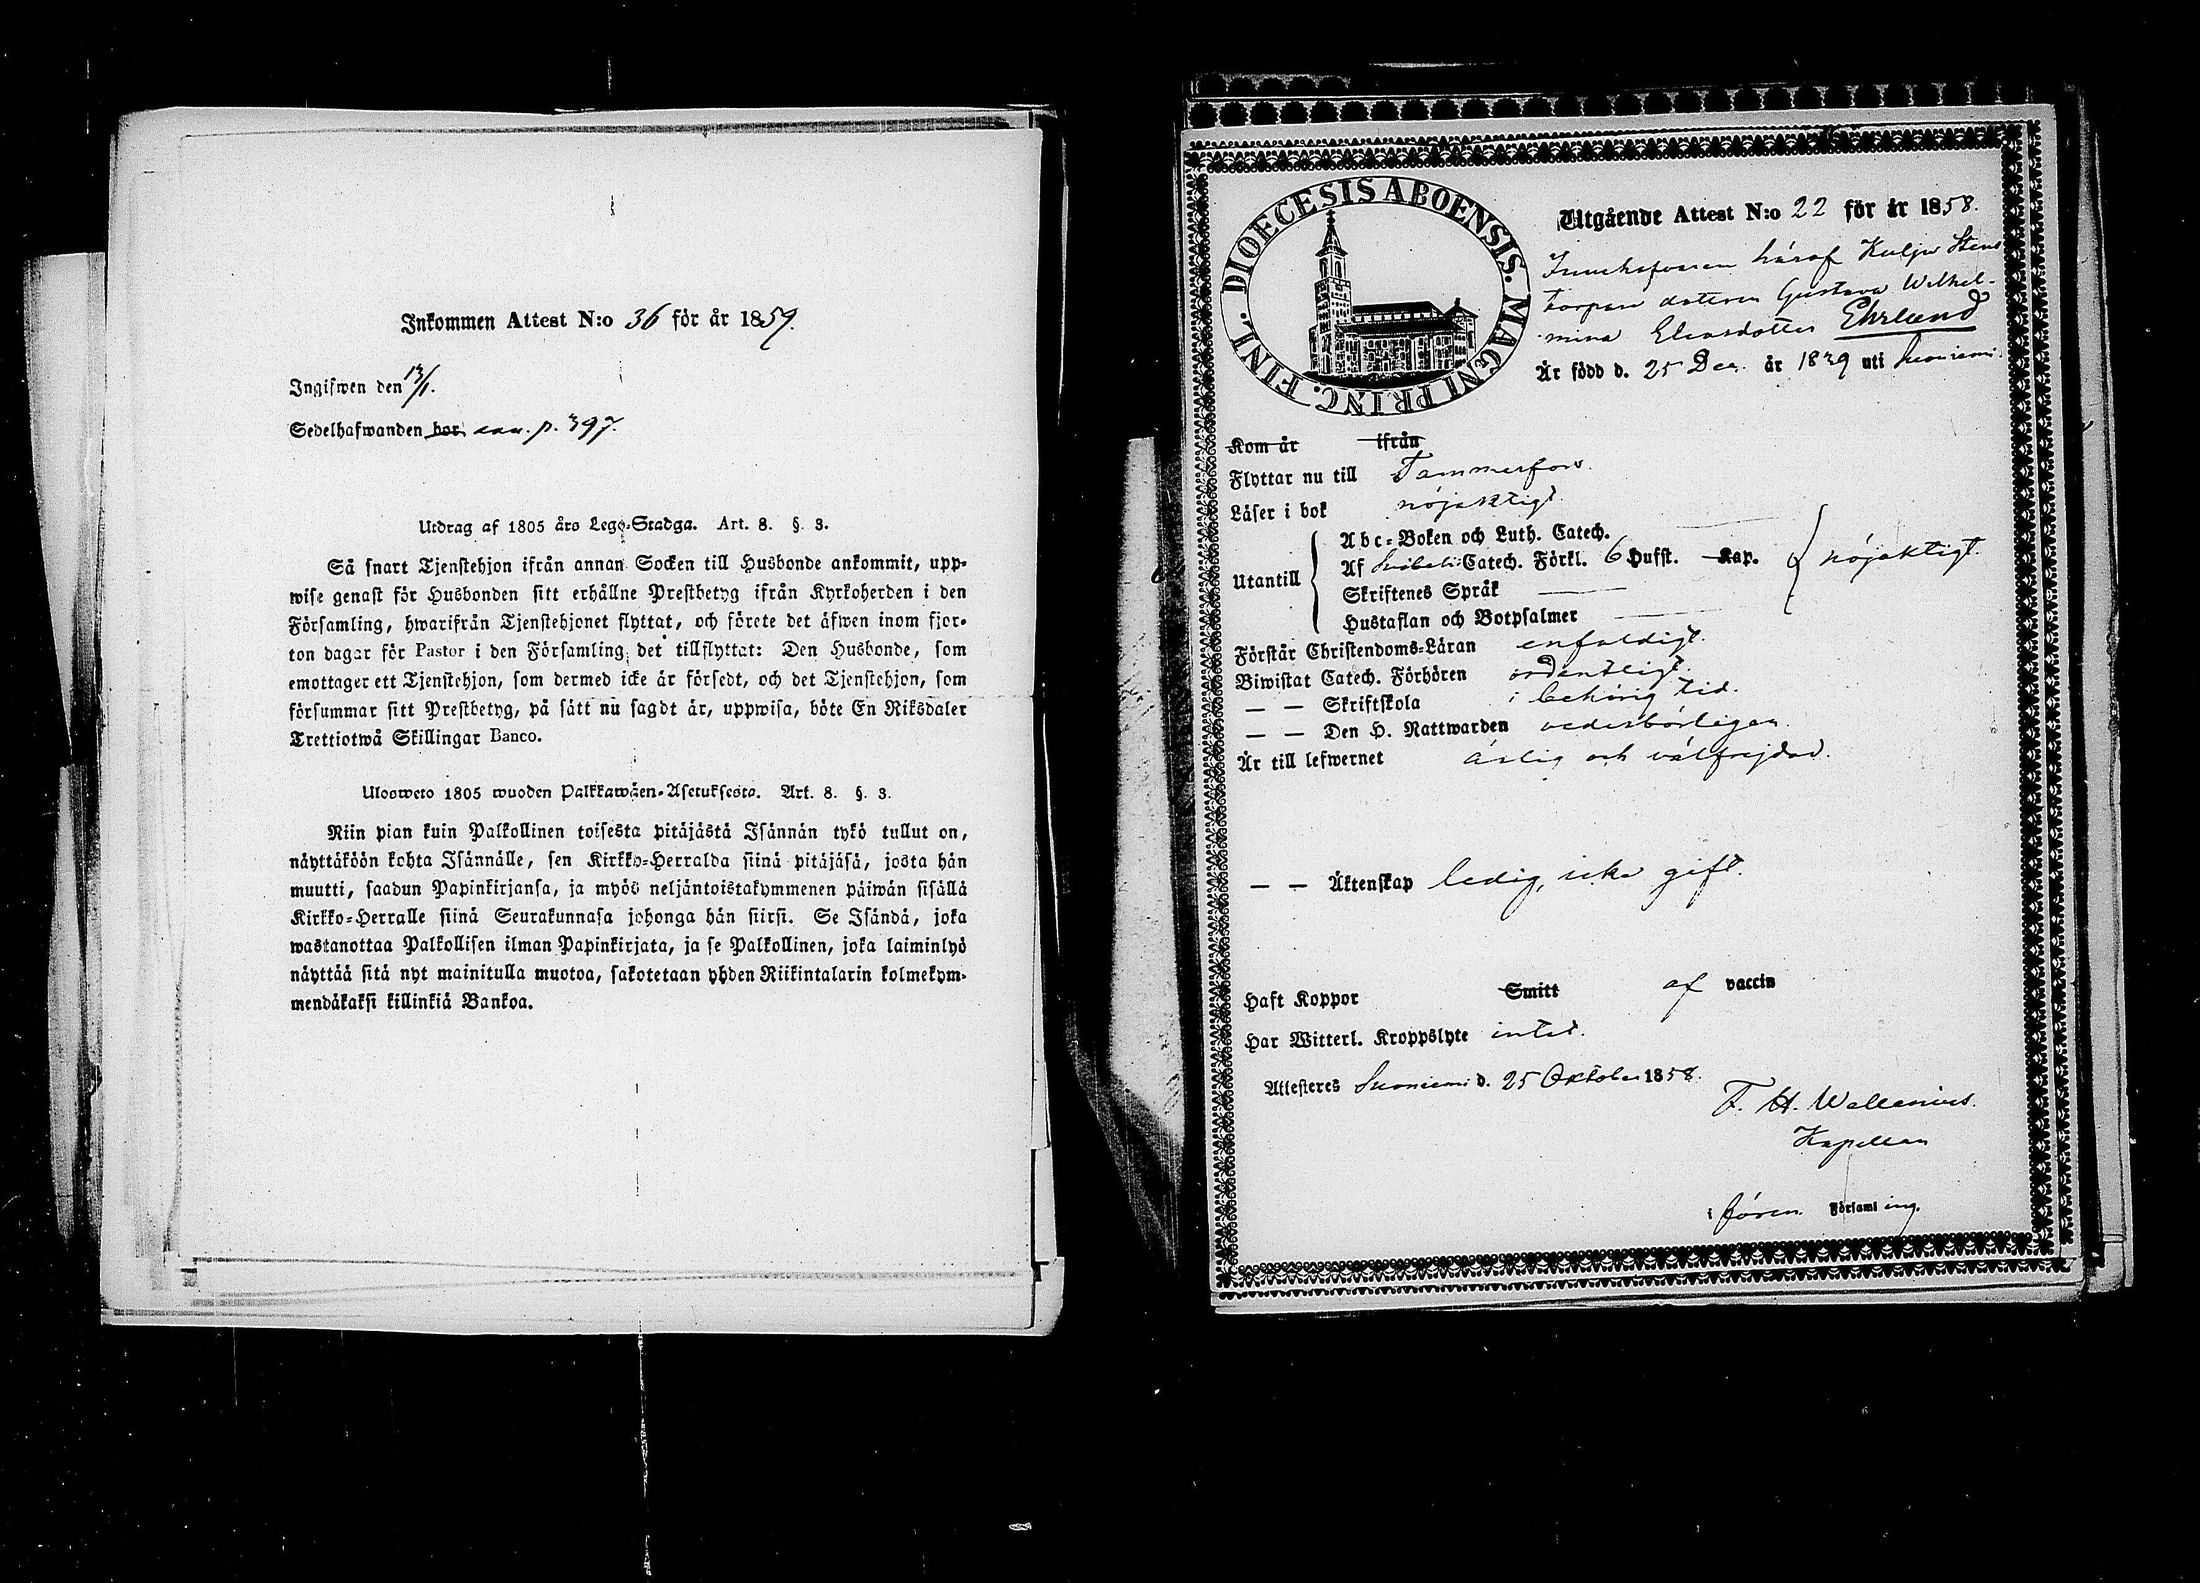 Inkommen Attest N:o 36 för år 1859.
Ingifwen den 13/1.
Sedelhafwanden bor ann. p. 397.
Utdrag af 1805 års Lego-Stadga. Art. 8. §. 3.
Så snart Tjenstehjon ifrån annan Socken till Husbonde ankommit, upp-
wise genast för Husbonden sitt erhållne Prestbetyg ifrån Kyrkoherden i den
Församling, hwarifrån Tjenstehjonet flyttat, och förete det äfwen inom fjor-
ton dagar för Pastor i den Församling det tillflyttat: Den Husbonde, som
emottager ett Tjenstehjon, som dermed icke är försedt, och det Tjenstehjon, som
försummar sitt Prestbetyg, på sätt nu sagdt är, uppwisa, böte En Riksdaler
Trettiotwå Skillingar Banco.
Ulosweto 1805 wuoden Palkkawäen-Asetuksesta. Art. 8. §. 3.
Niin pian kuin Palkollinen toisesta pitäjästä Isännän tykö tullut on,
näyttäköön kohta Isännälle, sen Kirkko-Herralda siinä pitäjäsä, josta hän
muutti, saadun Papinkirjansa, ja myös neljäntoistakymmenen päiwän sisällä
Kirkko-Herralle siinä Seurakunnasa johonga hän siirsi. Se Isändä, joka
wastanottaa Palkollisen ilman Papinkirjata, ja se Palkollinen, joka laiminlyö
näyttää sitä nyt mainitulla muotoa, sakotetaan yhden Riikintalarin kolmekym-
mendäkaksi killinkiä Bankoa.
DIOECESIS ABOENSIS. MAGNI PRINC. FINL.
Utgående Attest N:o 22 för år 1858.
häraf Kulju Stens
torpare dotren Gustava Wilhel-
mina Eliasdotter Ehrlund
Är född d. 25 Dec. år 1839 uti Suoniemi.
Kom år ifrån
Flyttar nu till Tammerfors.
Läser i bok nöjaktigt.
Utantill
Abc-Boken och Luth. Catech.
Af Svebelii Catech. Förkl. 6 Hufst. Kap. nöjaktigt.
Skriftenes Språk
Hustaflan och Botpsalmer
Förstår Christendoms-Läran enfaldigt.
Biwistat Catech. Förhören ordentligt.
— — Skriftskola i behörig tid.
— — Den H. Nattwarden vederbörligen.
Är till lefwernet ärlig och välfrejdad.
— — Äktenskap ledig, icke gift.
Haft Koppor Smitt af vaccin
Har Witterl. Kroppslyte intet.
Attesteres Suoniemi d. 25 Oktober 1858.
F. H. Wallenius.
Kapellan
i fören. Församling.